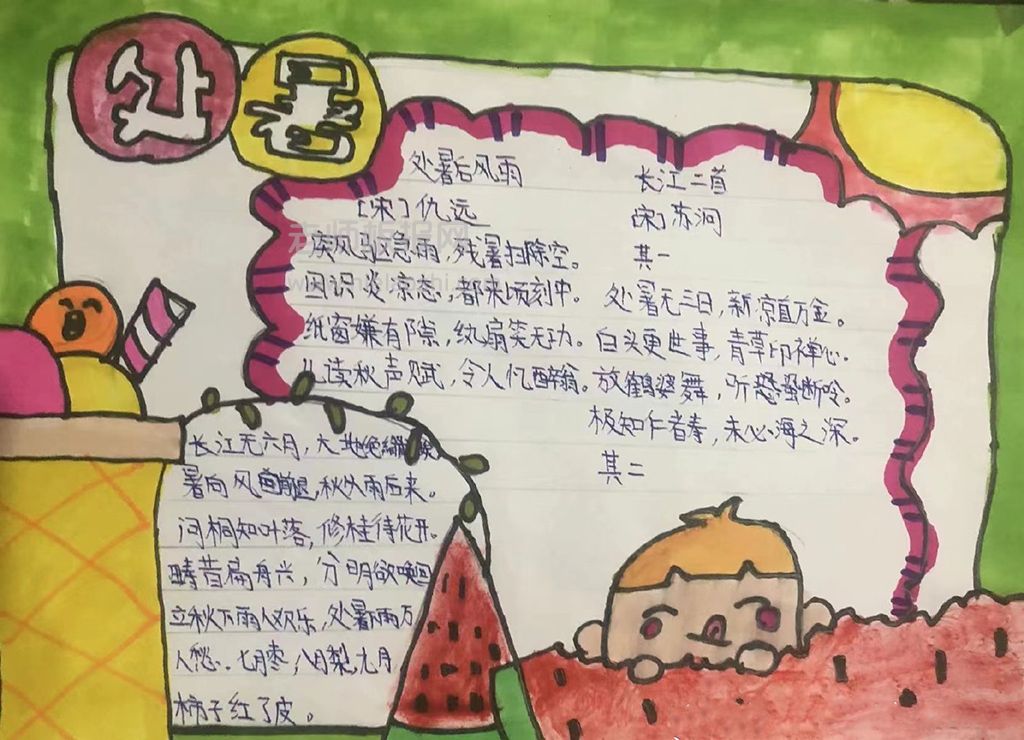 处暑
处暑后风雨
[宋]仇远
疾风驱急雨，残暑扫除空。
因识炎凉态，都来顷刻中。
纸窗嫌有隙，纨扇笑无功。
儿读秋声赋，令人忆醉翁。
长江二首
[宋]苏泂
其一
处暑无三日，新凉直万金。
白头更世事，青草印禅心。
放鹤婆舞，听蛩断吟。
极知作者，未必海之深。
其二
长江无六月，大地绝
暑向风前退，秋从雨后来。
问桐知叶落，修桂待花开。
畴昔扁舟兴，分明欲唤回
立秋下雨人欢乐，处暑下雨万
人愁。七月枣，八月梨，九月
柿子红了皮。